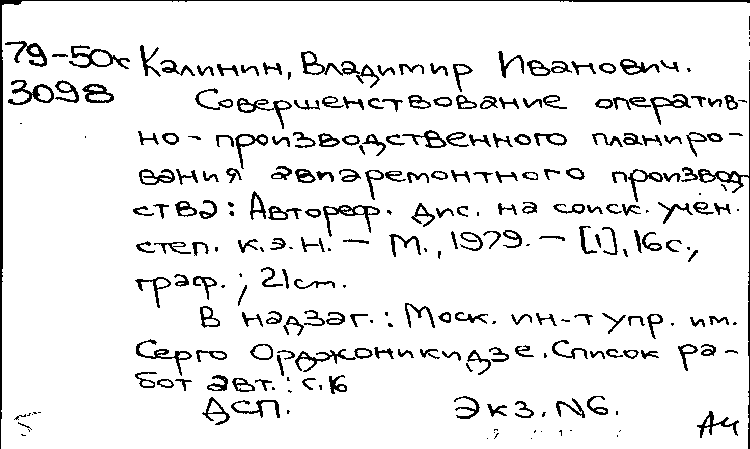 79-50к Калинин, Владимир Иванович.
3098 Совершенствование оператив-
но-производственного планиро-
вания авиаремонтного производ-
ства: Автореф. дис. на соиск. учен.
степ. к.э.н. – М., 1979. – [1], 16с.,
граф.; 21см.
В надзаг.: Моск. ин-т упр. им.
Серго Орджоникидзе. Список ра-
бот авт.: с.16
ДСП. Экз. N6.
5